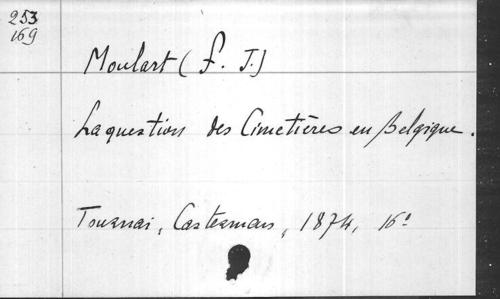 253
169
Moulart (F. J.)
La question des Cimetières en Belgique.
Tournai, Casterman, 1874, 16º